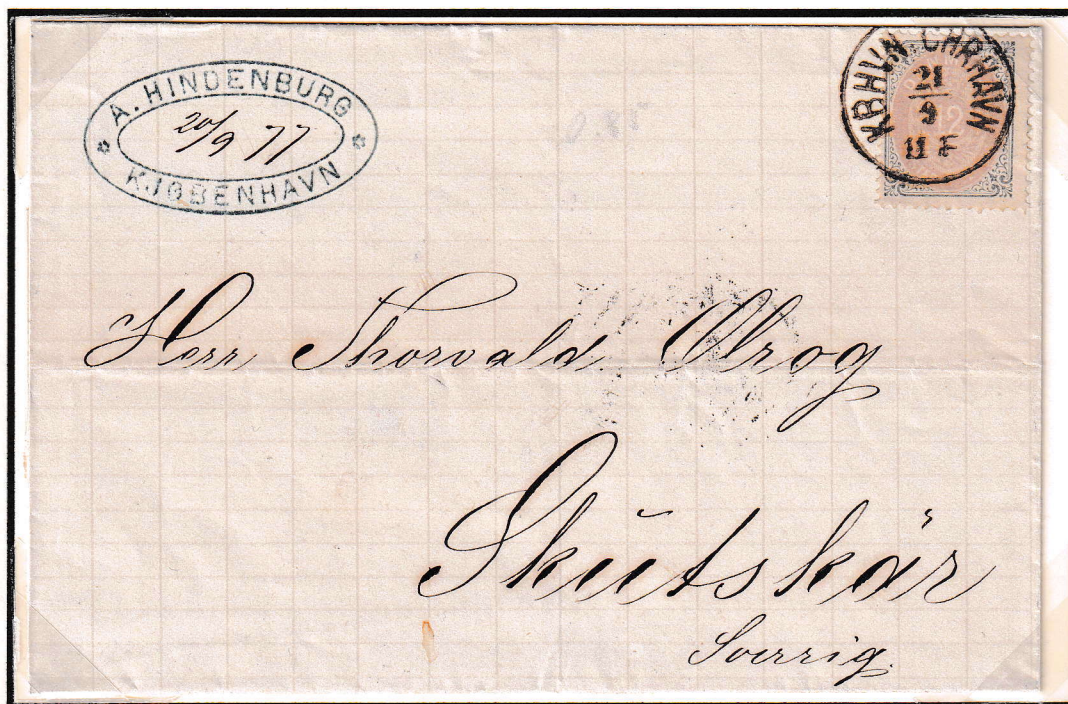 A. HINDENBURG
20/9 77
KJØBENHAVN
KBHVN. CHRHAVN
21
9
11 F
12
Herr Thorvald
Skutskär
Sverrig.